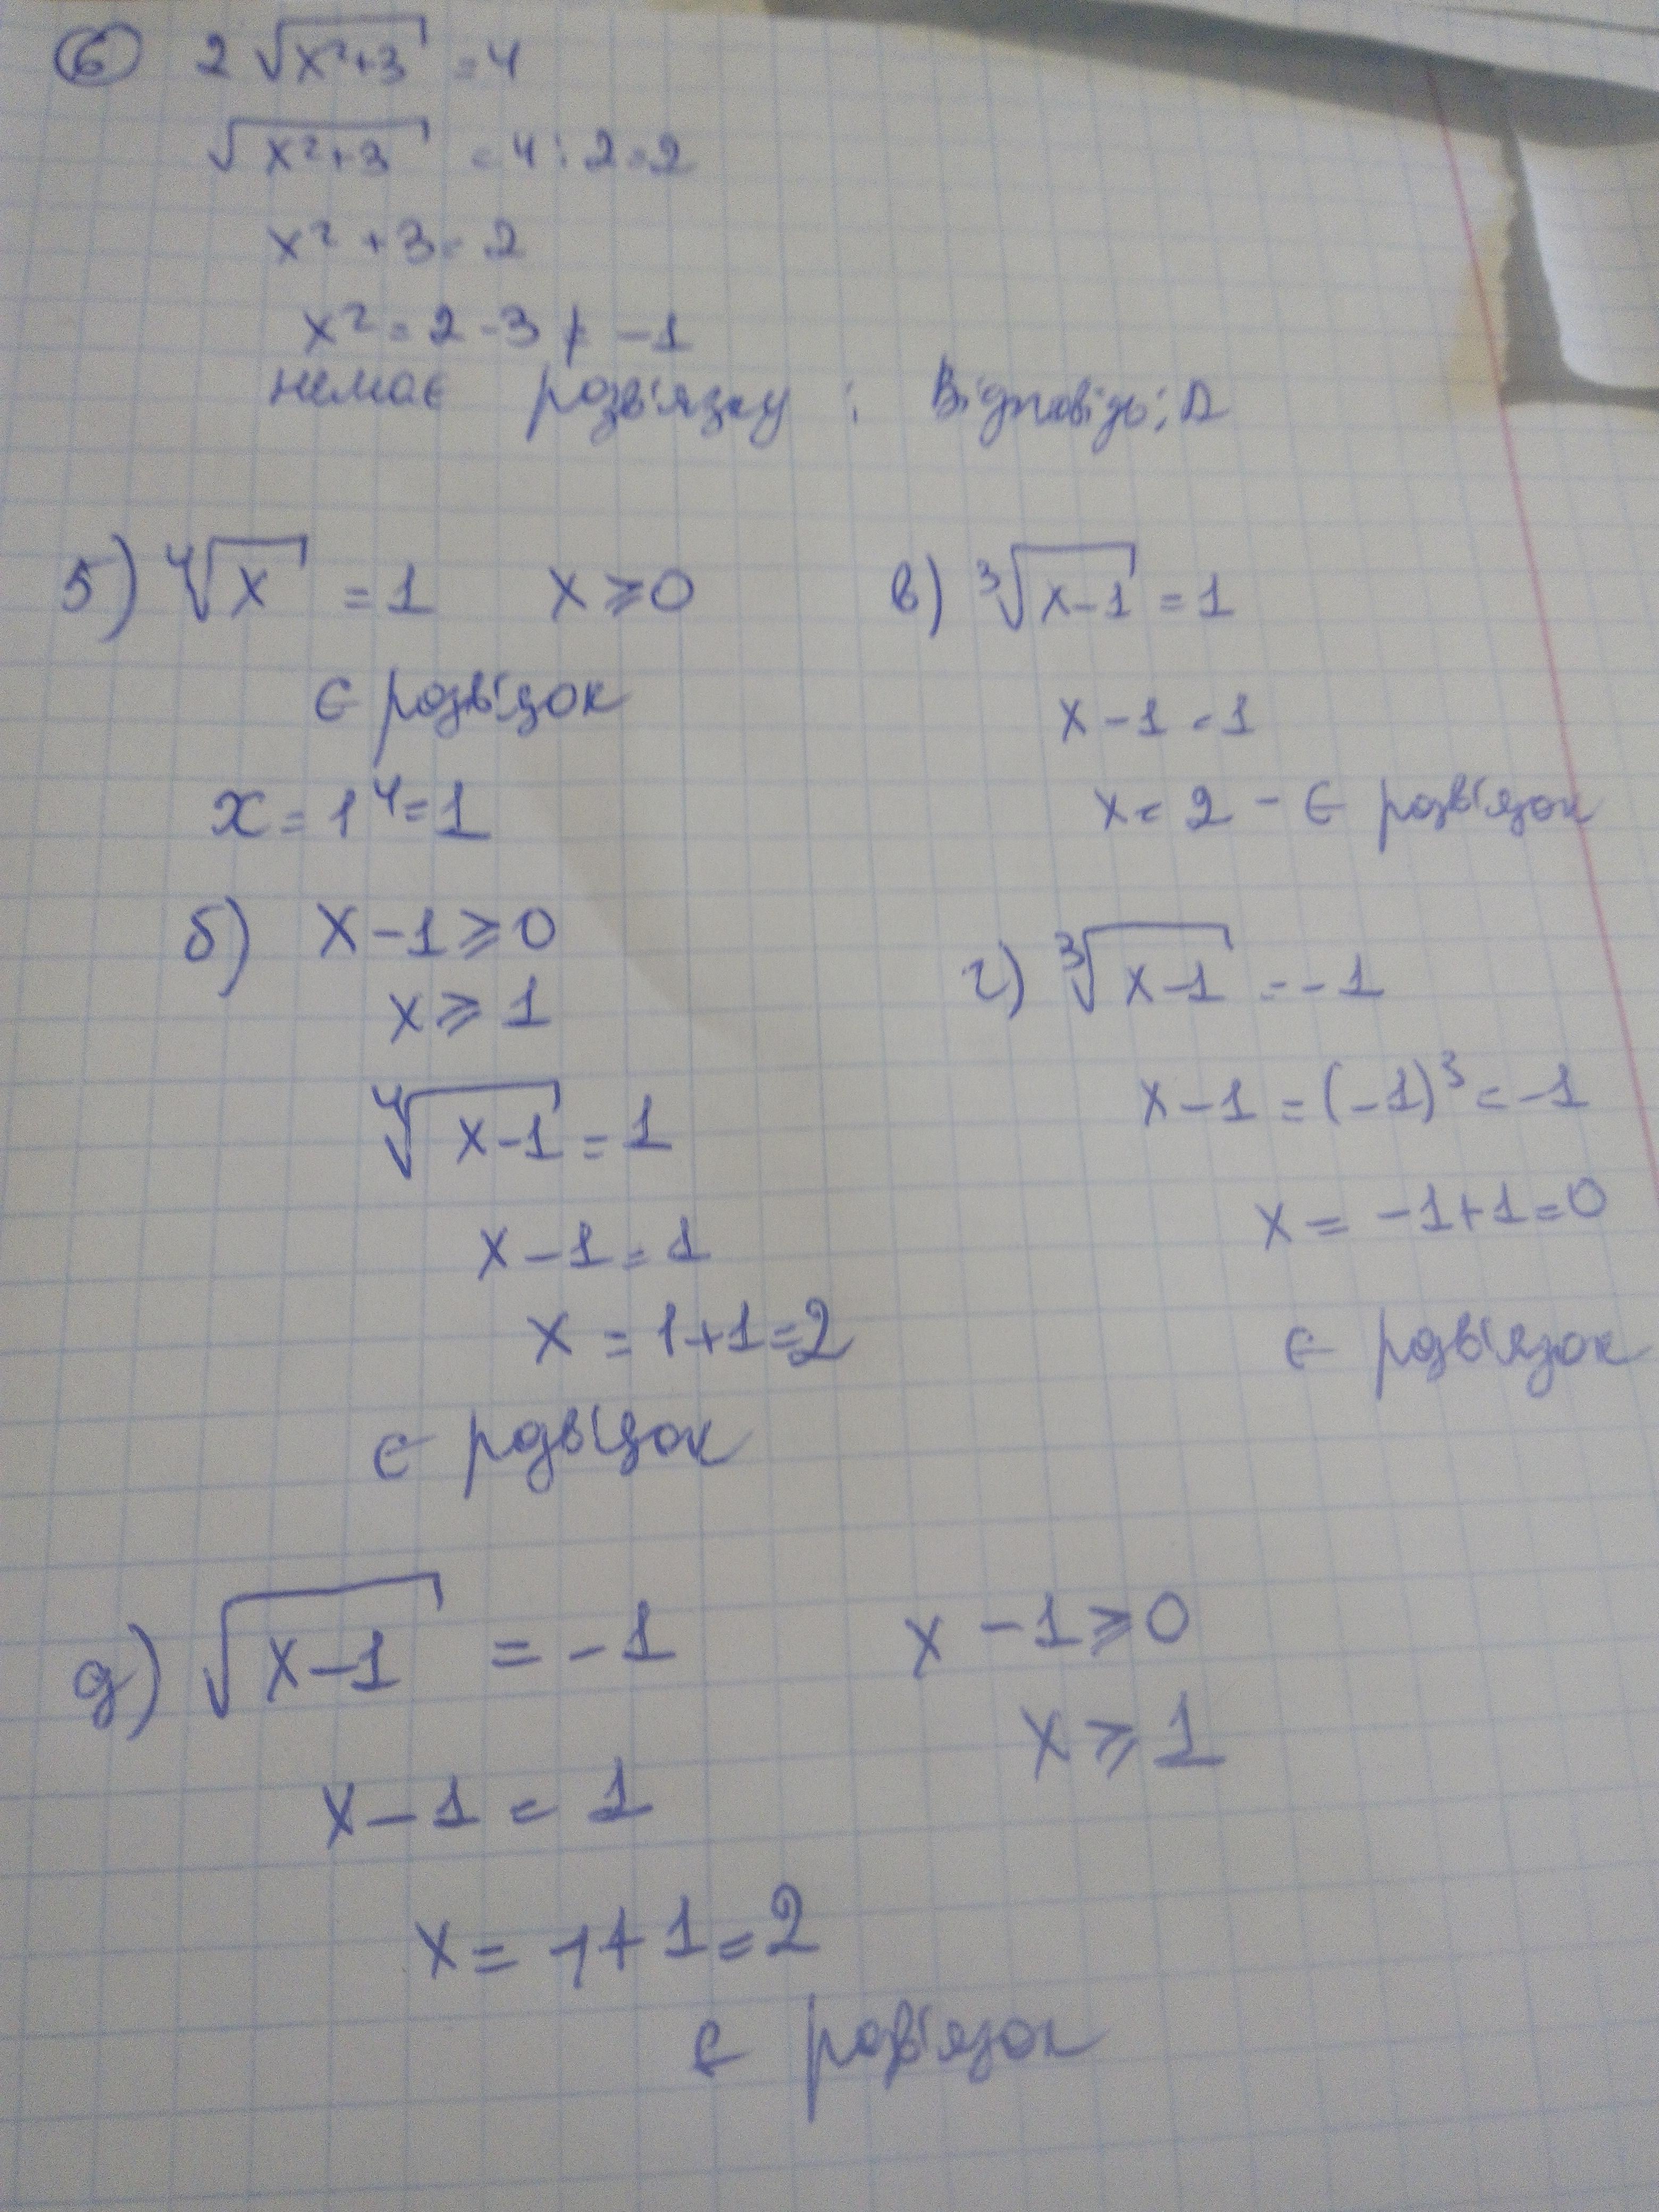 6 2√(x²+3) = 4
√(x²+3) = 4 : 2 = 2
x² + 3 = 2
x² = 2 - 3 ≠ -1
немає розв'язку ; Відповідь: Д
5) ⁴√x = 1 x ⩾ 0
є розв'язок
x = 1⁴ = 1
б) x - 1 ⩾ 0
x ⩾ 1
⁴√(x-1) = 1
x - 1 = 1
x = 1 + 1 = 2
є розв'язок
в) ³√(x-1) = 1
x - 1 = 1
x = 2 - є розв'язок
г) ³√(x-1) = -1
x - 1 = (-1)³ = -1
x = -1 + 1 = 0
є розв'язок
д) √(x-1) = -1 x - 1 ⩾ 0
x ⩾ 1
x - 1 = 1
x = 1 + 1 = 2
є розв'язок